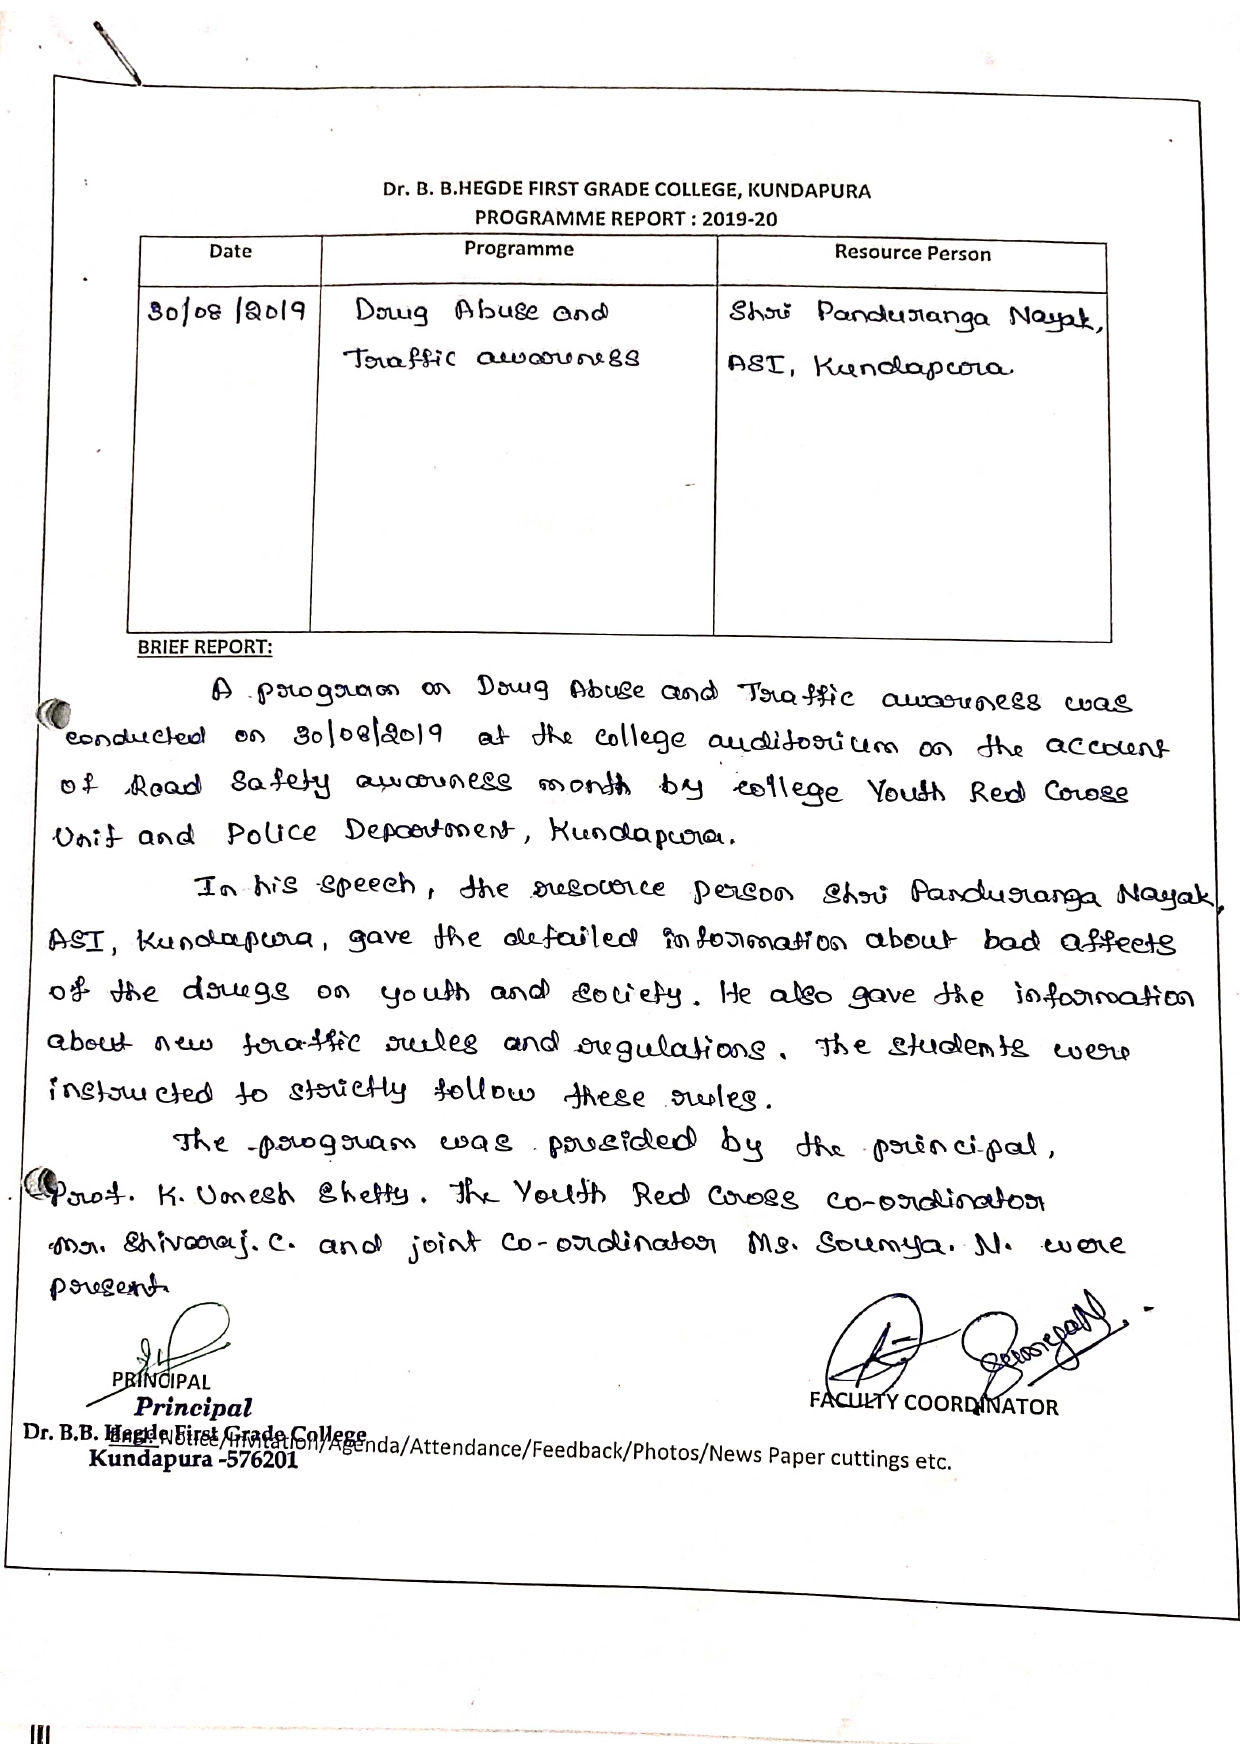 Dr. B. B.HEGDE FIRST GRADE COLLEGE, KUNDAPURA
PROGRAMME REPORT : 2019-20
Date Programme Resource Person
30/08/2019 Drug Abuse and Shri Panduranga Nayak,
Traffic awareness ASI, Kundapura
BRIEF REPORT:
A program on Drug Abuse and Traffic awareness was
conducted on 30/08/2019 at the college auditorium on the account
of Road Safety awareness month by college Youth Red Cross
Unit and Police Department, Kundapura.
In his speech, the resource person Shri Panduranga Nayak,
ASI, Kundapura, gave the detailed information about bad affects
of the drugs on youth and society. He also gave the information
about new traffic rules and regulations. The students were
instructed to strictly follow these rules.
The program was presided by the principal,
Prof. K. Umesh Shetty. The Youth Red Cross co-ordinator
Mr. Shivaraj. C. and joint co-ordinator Ms. Soumya. N. were
present.
SoumyaN
PRINCIPAL
FACULTY COORDINATOR
Principal
Dr. B.B. Hegde First Grade College
Encl: Notice/Invitation/Agenda/Attendance/Feedback/Photos/News Paper cuttings etc.
Kundapura -576201